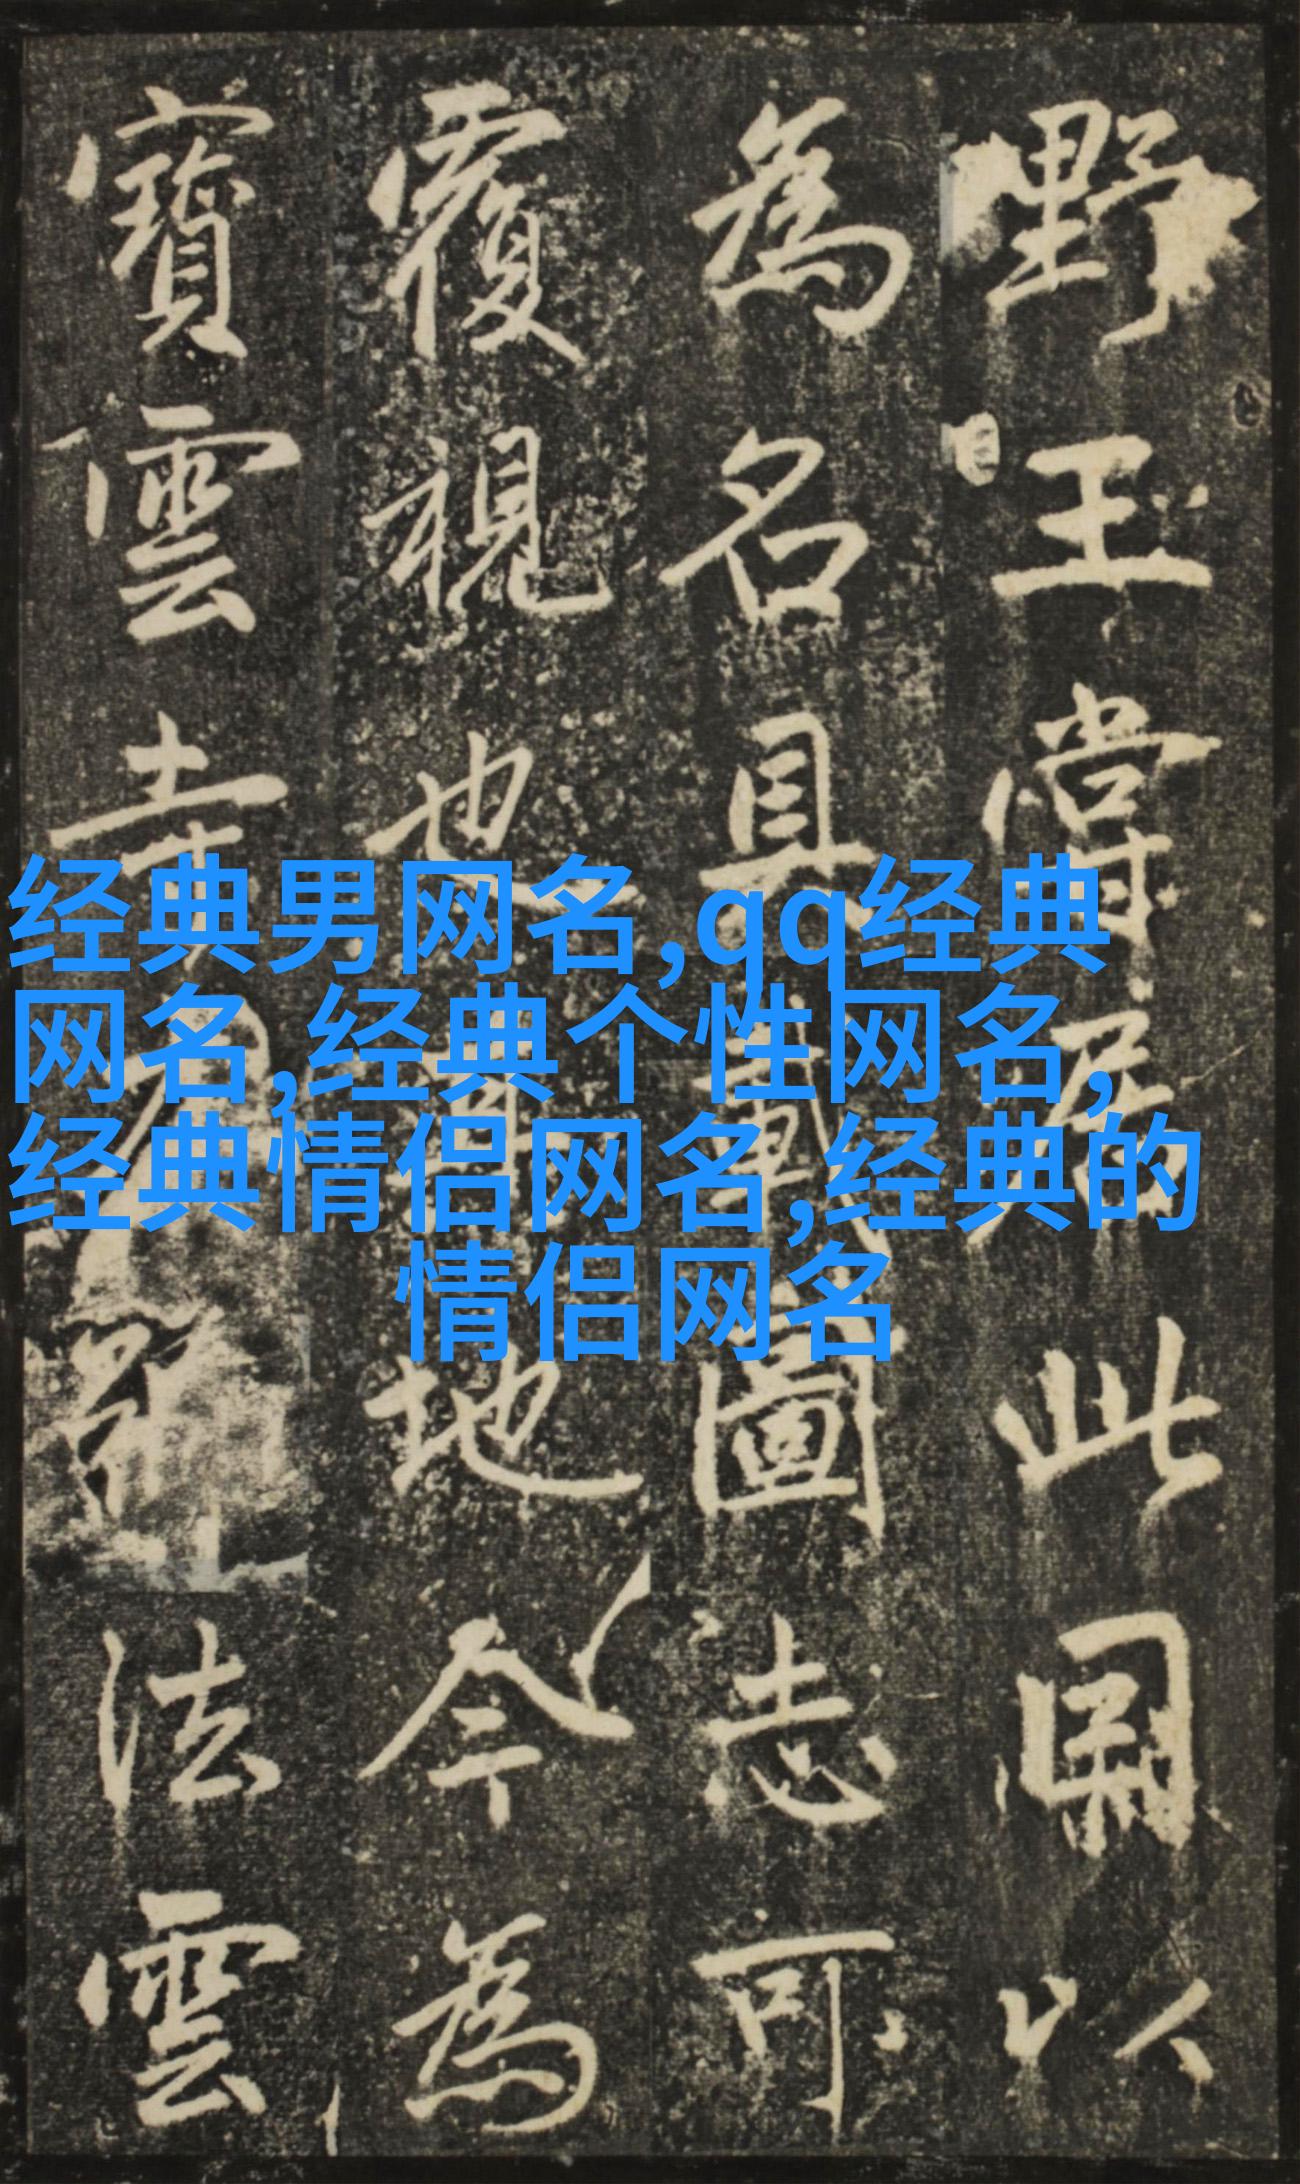 野王嘗居此以
為名具載圖志可
覆視也地今為
寶雲寺法雲
经典男网名,qq经典
网名,经典个性网名,
经典情侣网名,经典的
情侣网名